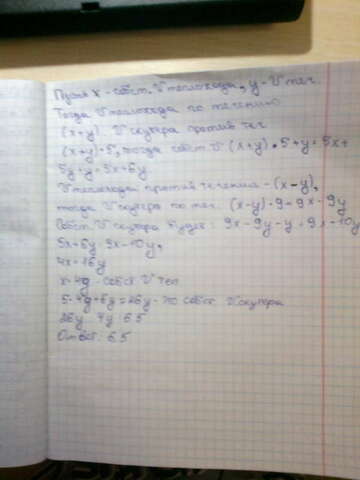 Пусть x - собст. V теплохода, y - V теч.
Тогда V теплохода по течению
(x+y). V скутера против теч
(x+y)·5, тогда собст V (x+y)·5+y = 5x+
5y+y = 5x+6y
V теплохода против течения - (x-y),
тогда V скутера по теч. (x-y)·9 = 9x-9y
Собст. V скутера будет: 9x-9y-y = 9x-10y
5x+6y 9x-10y,
4x=16y
x=4y - собст V теп
5·4y+6y=26y - это собст Vскутера
26y 4y 6.5
Ответ: 6.5